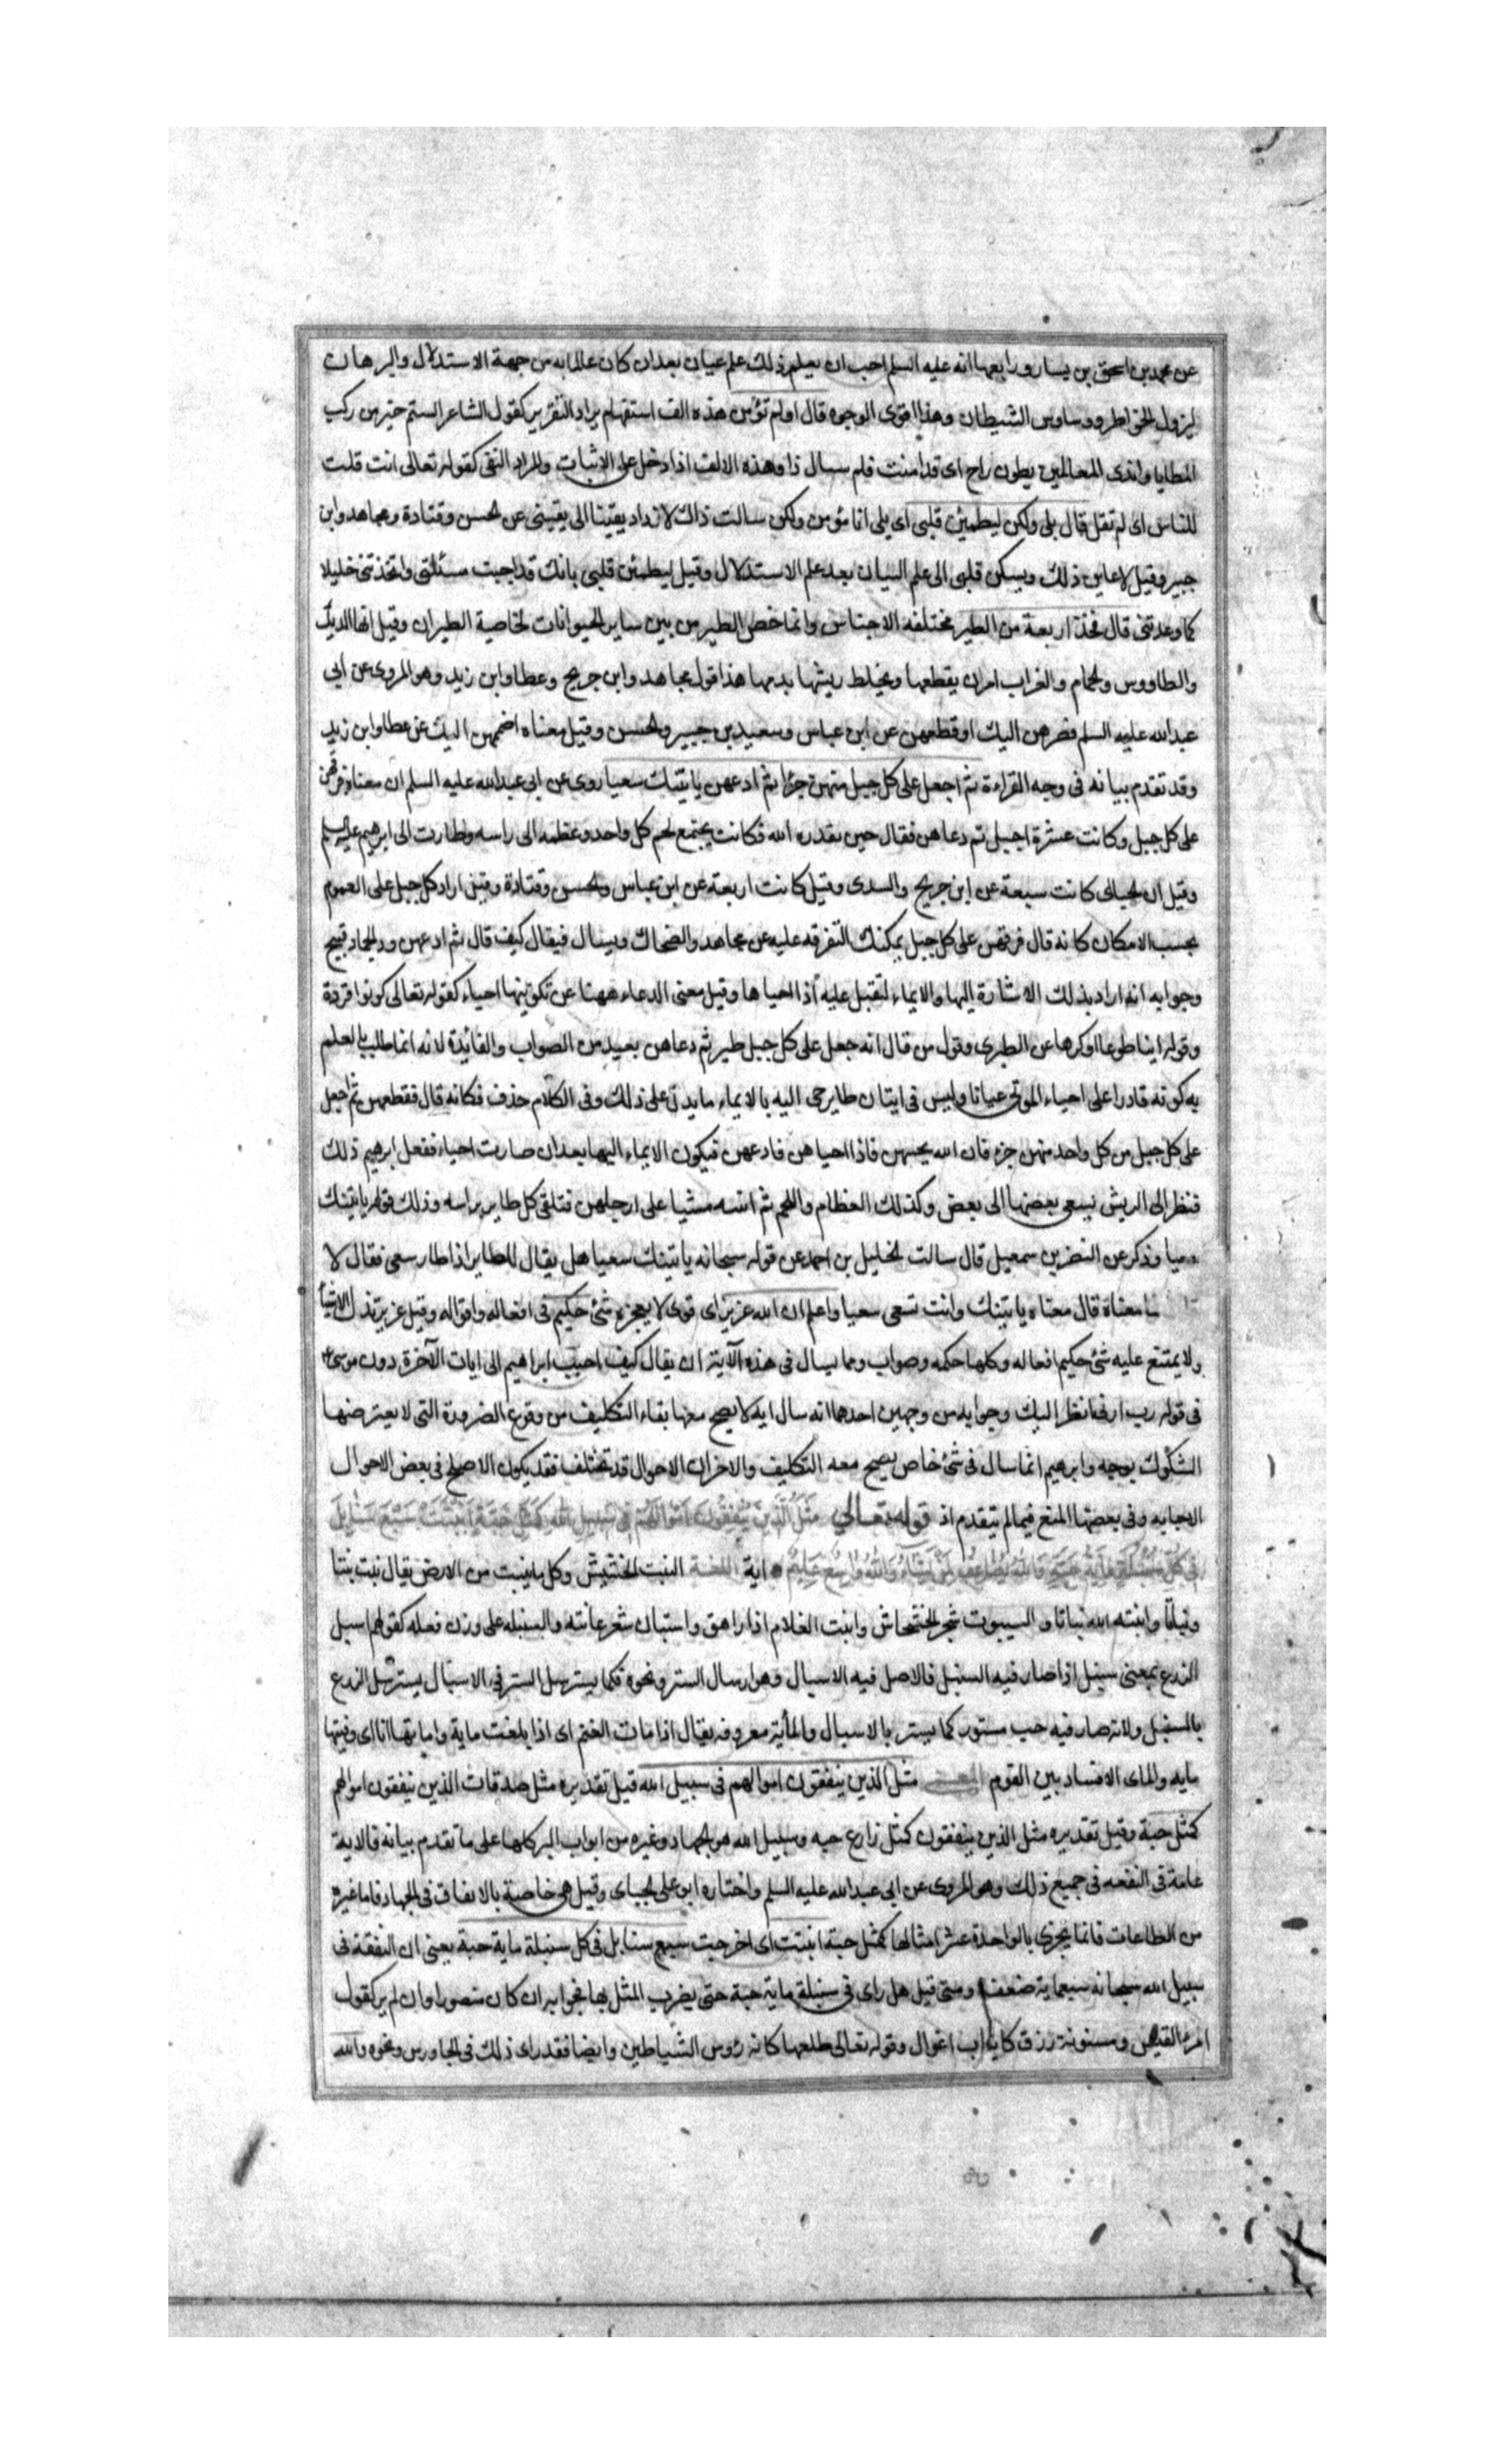 عن محمد بن اسحق بن يسار ورابعها انه عليه السلم احب ان يعلم ذلك علم عيان بعد ان كان عالما به من جهة الاستدلال والبرهان
ليزول الخواطر ووساوس الشيطان وهذا اقوى الوجوه قال اولم تؤمن هذه الف استفهام يراد التقرير كقول الشاعر الستم خير من ركب
المطايا واندى العالمين بطون راح اى قد امنت فلم سال ذا وهذه الالف اذا دخل على الاثبات والمراد النفى كقوله تعالى انت قلت
للناس اى لم تقل قال بلى ولكن ليطمئن قلبى اى بلى انا مؤمن ولكن سالت ذاك لازداد يقينا الى يقينى عن الحسن وقتادة ومجاهد وابن
جبير وقيل لاعاين ذلك ويسكن قلبى الى علم العيان بعد علم الاستدلال وقيل ليطمئن قلبى بانك قد اجبت مسئلتى واتخذتنى خليلا
كما وعدتنى قال فخذ اربعة من الطير مختلفه الاجناس وانما خص الطير من بين ساير الحيوانات لخاصية الطيران وقيل انها الديك
والطاووس والحمام والغراب امر ان يقطعها ويخلط ريشها بدمها هذا قول مجاهد وابن جريح وعطا وابن زيد وهو المروى عن ابى
عبدالله عليه السلم فصرهن اليك او قطعهن عن ابن عباس وسعيد بن جبير والحسن وقيل معناه اضممهن اليك عن عطا وابن زيد
وقد تقدم بيانه فى وجه القراءة ثم اجعل على كل جبل منهن جزءا ثم ادعهن ياتينك سعيا روى عن ابى عبدالله عليه السلم ان معناه فرقهن
على كل جبل وكانت عشرة اجبل ثم دعاهن فقال حين بقدره الله فكانت يجتمع لحم كل واحد وعظمه الى راسه وطارت الى ابرهيم عليه السلم
وقيل ان الجبال كانت سبعة عن ابن جريح والسدى وقيل كانت اربعة عن ابن عباس والحسن وقتادة وقيل اراد كل جبل على العموم
بحسب الامكان كانه قال فرقهن على كل جبل يمكنك التفرقه عليه عن مجاهد والضحاك ويسال فيقال كيف قال ثم ادعهن ودعا الجماد قبيح
وجوابه انه اراد بذلك الاشارة اليها والايماء لتقبل عليه اذا احياها وقيل معنى الدعاء ههنا عن تكوينها احياء كقوله تعالى كونوا قردة
وقوله ايتيا طوعا او كرها عن الطبرى وقول من قال انه جعل على كل جبل طير ثم دعاهن بعيد من الصواب والفائدة لانه انما طلب العلم
به كونه قادرا على احياء الموتى عيانا وليس فى اتيان طاير حى اليه بالايماء ما يدل على ذلك وفى الكلام حذف فكانه قال فقطعهن ثم اجعل
على كل جبل من كل واحد منهن جزء فان الله يحييهن فاذا احياهن فادعهن فيكون الايماء اليها بعد ان صارت احياء ففعل ابرهيم ذلك
فنظر الى الريش يسعى بعضها الى بعض وكذلك العظام واللحم ثم اتته مشيا على ارجلهن فتلقى كل طاير براسه وذلك قوله ياتينك
سعيا وذكر عن النضر بن سمعيل قال سالت الخليل بن احمد عن قوله سبحانه ياتينك سعيا هل يقال للطاير اذا طار سعى فقال لا
ما معناه قال معناه ياتينك وانت تسعى سعيا واعلم ان الله عزيز اى قوى لا يعجزه شئ حكيم فى افعاله واقواله وقيل عزيز تذل الاشياء
ولا يمتنع عليه شئ حكيم افعاله وكلها حكمه وصواب ومما يسال فى هذه الآية ان يقال كيف اجيب ابراهيم الى ايات الآخرة دون موسى
فى قوله رب ارنى انظر اليك وجوابه من وجهين احدهما انه سال اية لا يصح معها بقاء التكليف من وقوع الضرورة التى لا يعترضها
الشكوك بوجه وابرهيم انما سال فى شئ خاص يصح معه التكليف والاخر ان الاحوال قد تختلف فقد يكون الاصلح فى بعض الاحوال
الاجابه وفى بعضها المنع فيما لم يتقدم اذ قوله تعالى مثل الذين ينفقون اموالهم فى سبيل الله كمثل حبة انبتت سبع سنابل
فى كل سنبلة ماية حبة والله يضاعف لمن يشاء والله واسع عليم اية اللغة النبت الحشيش وكل ما ينبت من الارض يقال نبت نبتا
ونباتا وانبته الله نباتا و شجر الخشخاش وانبت الغلام اذا راهق واستبان شعر عانته والسنبله على وزن فعله كقولهم اسبل
الزرع بمعنى سنبل اذا صار فيه السنبل فالاصل فيه الاسبال وهو ارسال الستر ونحوه فكما يسترسل الستر فى الاسبال يسترسل الزرع
بالسنبل ولانه صار فيه حب مستور كما يستر بالاسبال والمأية معروفه يقال اذا مات الغنم اى اذا بلغت ماية واماتها انا اى وفيتها
مايه والماى الافساد بين القوم المعنى مثل الذين ينفقون اموالهم فى سبيل الله قيل تقديره مثل صدقات الذين ينفقون اموالهم
كمثل حبة وقيل تقديره مثل الذين ينفقون كمثل زارع حبه وسبيل الله هو الجهاد وغيره من ابواب البر كلها على ما تقدم بيانه فالاية
عامة فى النفقه فى جميع ذلك وهو المروى عن ابى عبدالله عليه السلم واختاره ابو على الجباى وقيل هى خاصة بالانفاق فى الجهاد فاما غيره
من الطاعات فانما يجزى بالواحدة عشر امثالها كمثل حبة انبتت اى اخرجت سبع سنابل فى كل سنبلة ماية حبة يعنى ان النفقة فى
سبيل الله سبحانه سبعماية ضعف ومتى قيل هل راى فى سنبلة ماية حبة حتى يضرب المثل بها فجوابه ان كان متصورا وان لم ير كقول
امرء القيس ومسنونة زرق كانياب اغوال وقوله تعالى طلعها كانه رؤس الشياطين وايضا فقد راى ذلك فى الجاورس ونحوه والله